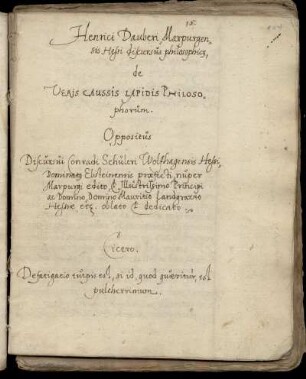 Henrici Dauberi Marpurgen,
sis Hessi discursus philosophicus,
de
VERIS CAUSSIS LAPIDIS PHILOSO,
phorum.
Oppositus
Discursui Conradi Schüleri Wolfhagensis Hessi,
Dominatus Ebsteinensis praefecti nuper
Marpurgi edito, & Illustrissimo Principi
ac Domino, Domino Mauritio Landgravio
Hessiae etc. oblato & dedicato
Cicero.
Defatigatio turpis est, si id, quod quaeritur, est
pulcherrimum.